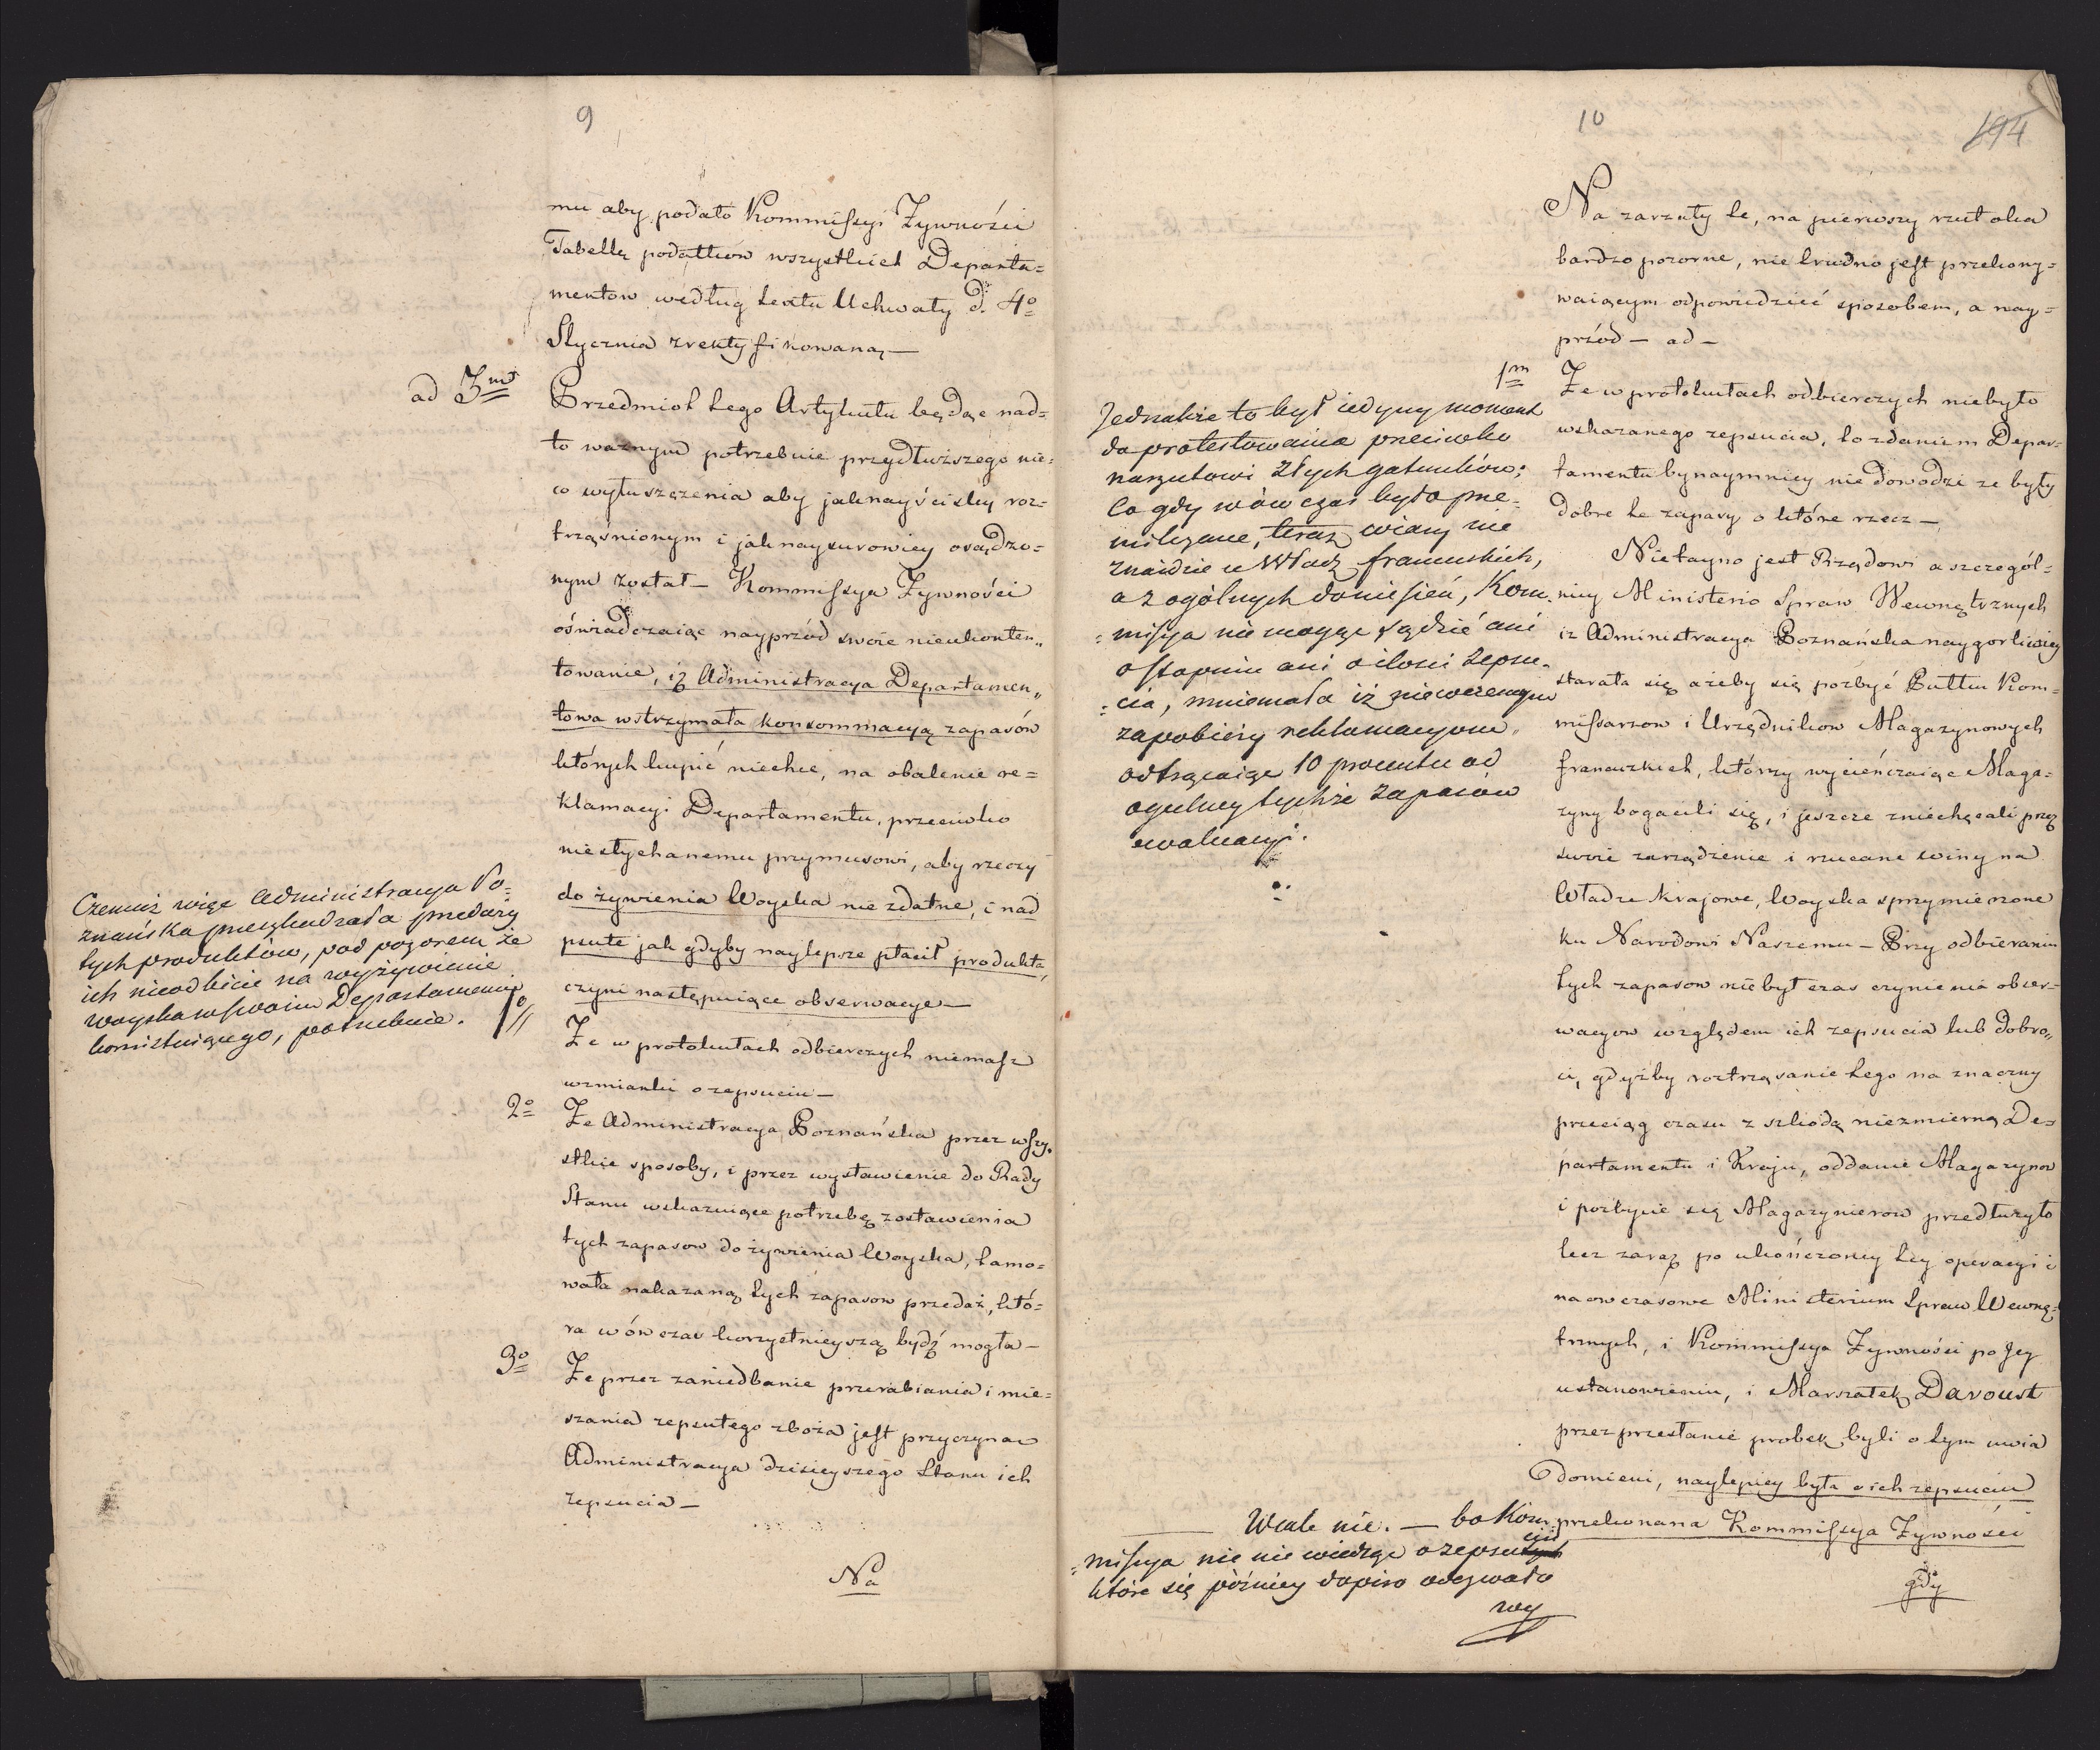 9
mu aby podało Kommissyi Zywności
Tabellę podatków wszystkich Departa=
mentow według textu Uchwały d. 4o
Stycznia zrektyfikowaną —
ad 3m
Przedmiot tego Artykułu będąc nad=
to ważnym potrzebuie przydłuższego nie=
co wyłuszczenia aby jaknayściśley roz=
trząśnionym i jaknaysurowiey osądzo=
nym został — Kommissya Zywności
oświadczaiąc nayprzód swoie nieukonten„
towanie, iż Administracya Departamen„
towa wstrzymała konsommacyą zapasów
których kupić niechce, na obalenie re=
klamacyi Departamentu, przeciwko
niesłychanemu przymusowi, aby rzeczy
do żywienia Woyska nie zdatne, i nad
psute jak gdyby naylepsze płacił produkta,
czyni następuiące obserwacye —
Czemuż więc Administracya Po=
znańska przeszkadzała przedaży
tych produktów, pod pozorem że
ich nieodbicie na wyżywienie
woyska w swoim Departamencie
konsistuiącego, potrzebuie.
1o//
Ze w protokułach odbierczych niemasz
wzmianki o zepsuciu —
2o
Ze Administracya Poznańska przez wszy=
stkie sposoby, i przez wystawienie do Rady
Stanu wskazuiące potrzebę zostawienia
tych zapasow do żywienia Woyska, tamo=
wała nakazaną tych zapasow przedaż, któ=
ra wówczas korzystnieyszą bydź mogła —
3o
Ze przez zaniedbanie przerabiania i mie=
szania zepsutego zboża jest przyczyną
Administracya dzisieyszego Stanu ich
zepsucia —
Na
10
194
Na zarzuty te, na pierwszy rzut oka
bardzo pozorne, nie trudno jest przekony=
waiącym odpowiedzieć sposobem, a nay=
przód — ad —
1m
Ze w protokułach odbierczych niebyło
wskazanego zepsucia, to zdaniem Depar=
tamentu bynaymniey nie dowodzi ze były
dobre te zapasy o które rzecz —
Jednakże to był iedyny moment
do protestowania przeciwko
narzutowi złych gatunków;
Co gdy wówczas było prze=
milczane, teraz wiary nie
znaidzie u Władz francuskich,
a z ogólnych doniesień, Kom=
=missya nie mogąc sądzić ani
o stopniu ani o ilości zepsu=
=cia, mniemała iż niewczesnym
zapobieży reklamacyom„
odtrącaiąc 10 procentu od
ogulney tychże zapasów
ewaluacyi.
Nietayno jest Rządowi a szczegól=
niey Ministerio Spraw Wewnętrznych
iz Administracya Poznańska naygorliwiey
starała się ażeby się pozbyć Puttu Kom=
missarzow i Urzędnikow Magazynowych
francuzkich, którzy wycieńczaiąc Maga=
zyny bogacili się, i jeszcze zniechęcali przez
swoie zarządzenie i rzucane winy na
Władze krajowe, Woyska sprzymierzone
ku Narodowi Naszemu — Przy odbieraniu
tych zapasow niebył czas czynienia obser=
wacyow względem ich zepsucia lub dobro„
ci, gdyżby roztrząsanie tego na znaczny
przeciąg czasu z szkodą niezmierną De=
partamentu i Kraju, oddanie Magazynow
i pozbycie się Magazynierow przedłużyło
lecz zaraz po ukończoney tey operacyi i
naowczasowe Ministerium Spraw Wewnę=
trznych, i Kommissya Zywności po Jey
ustanowieniu, i Marszałek Davoust
przez przesłanie probek byli o tym uwia
domieni, naylepiey była o ich zepsuciu
przekonana Kommissya Zywności
Wcale nie. — bo Kom=
=missya nic nie wiedząc o zepsuciu
które się późniey dopiro odezwało
gdy